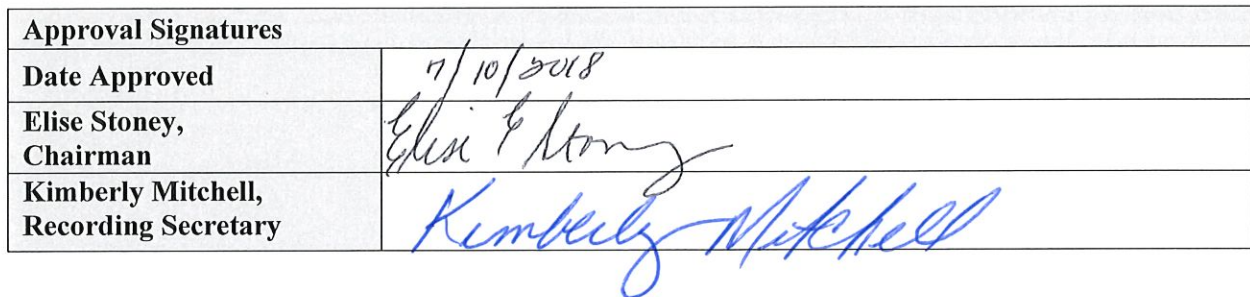 Approval Signatures
Date Approved
7/10/2018
Elise Stoney,
Chairman
Elise E Stoney
Kimberly Mitchell,
Recording Secretary
Kimberly Mitchell